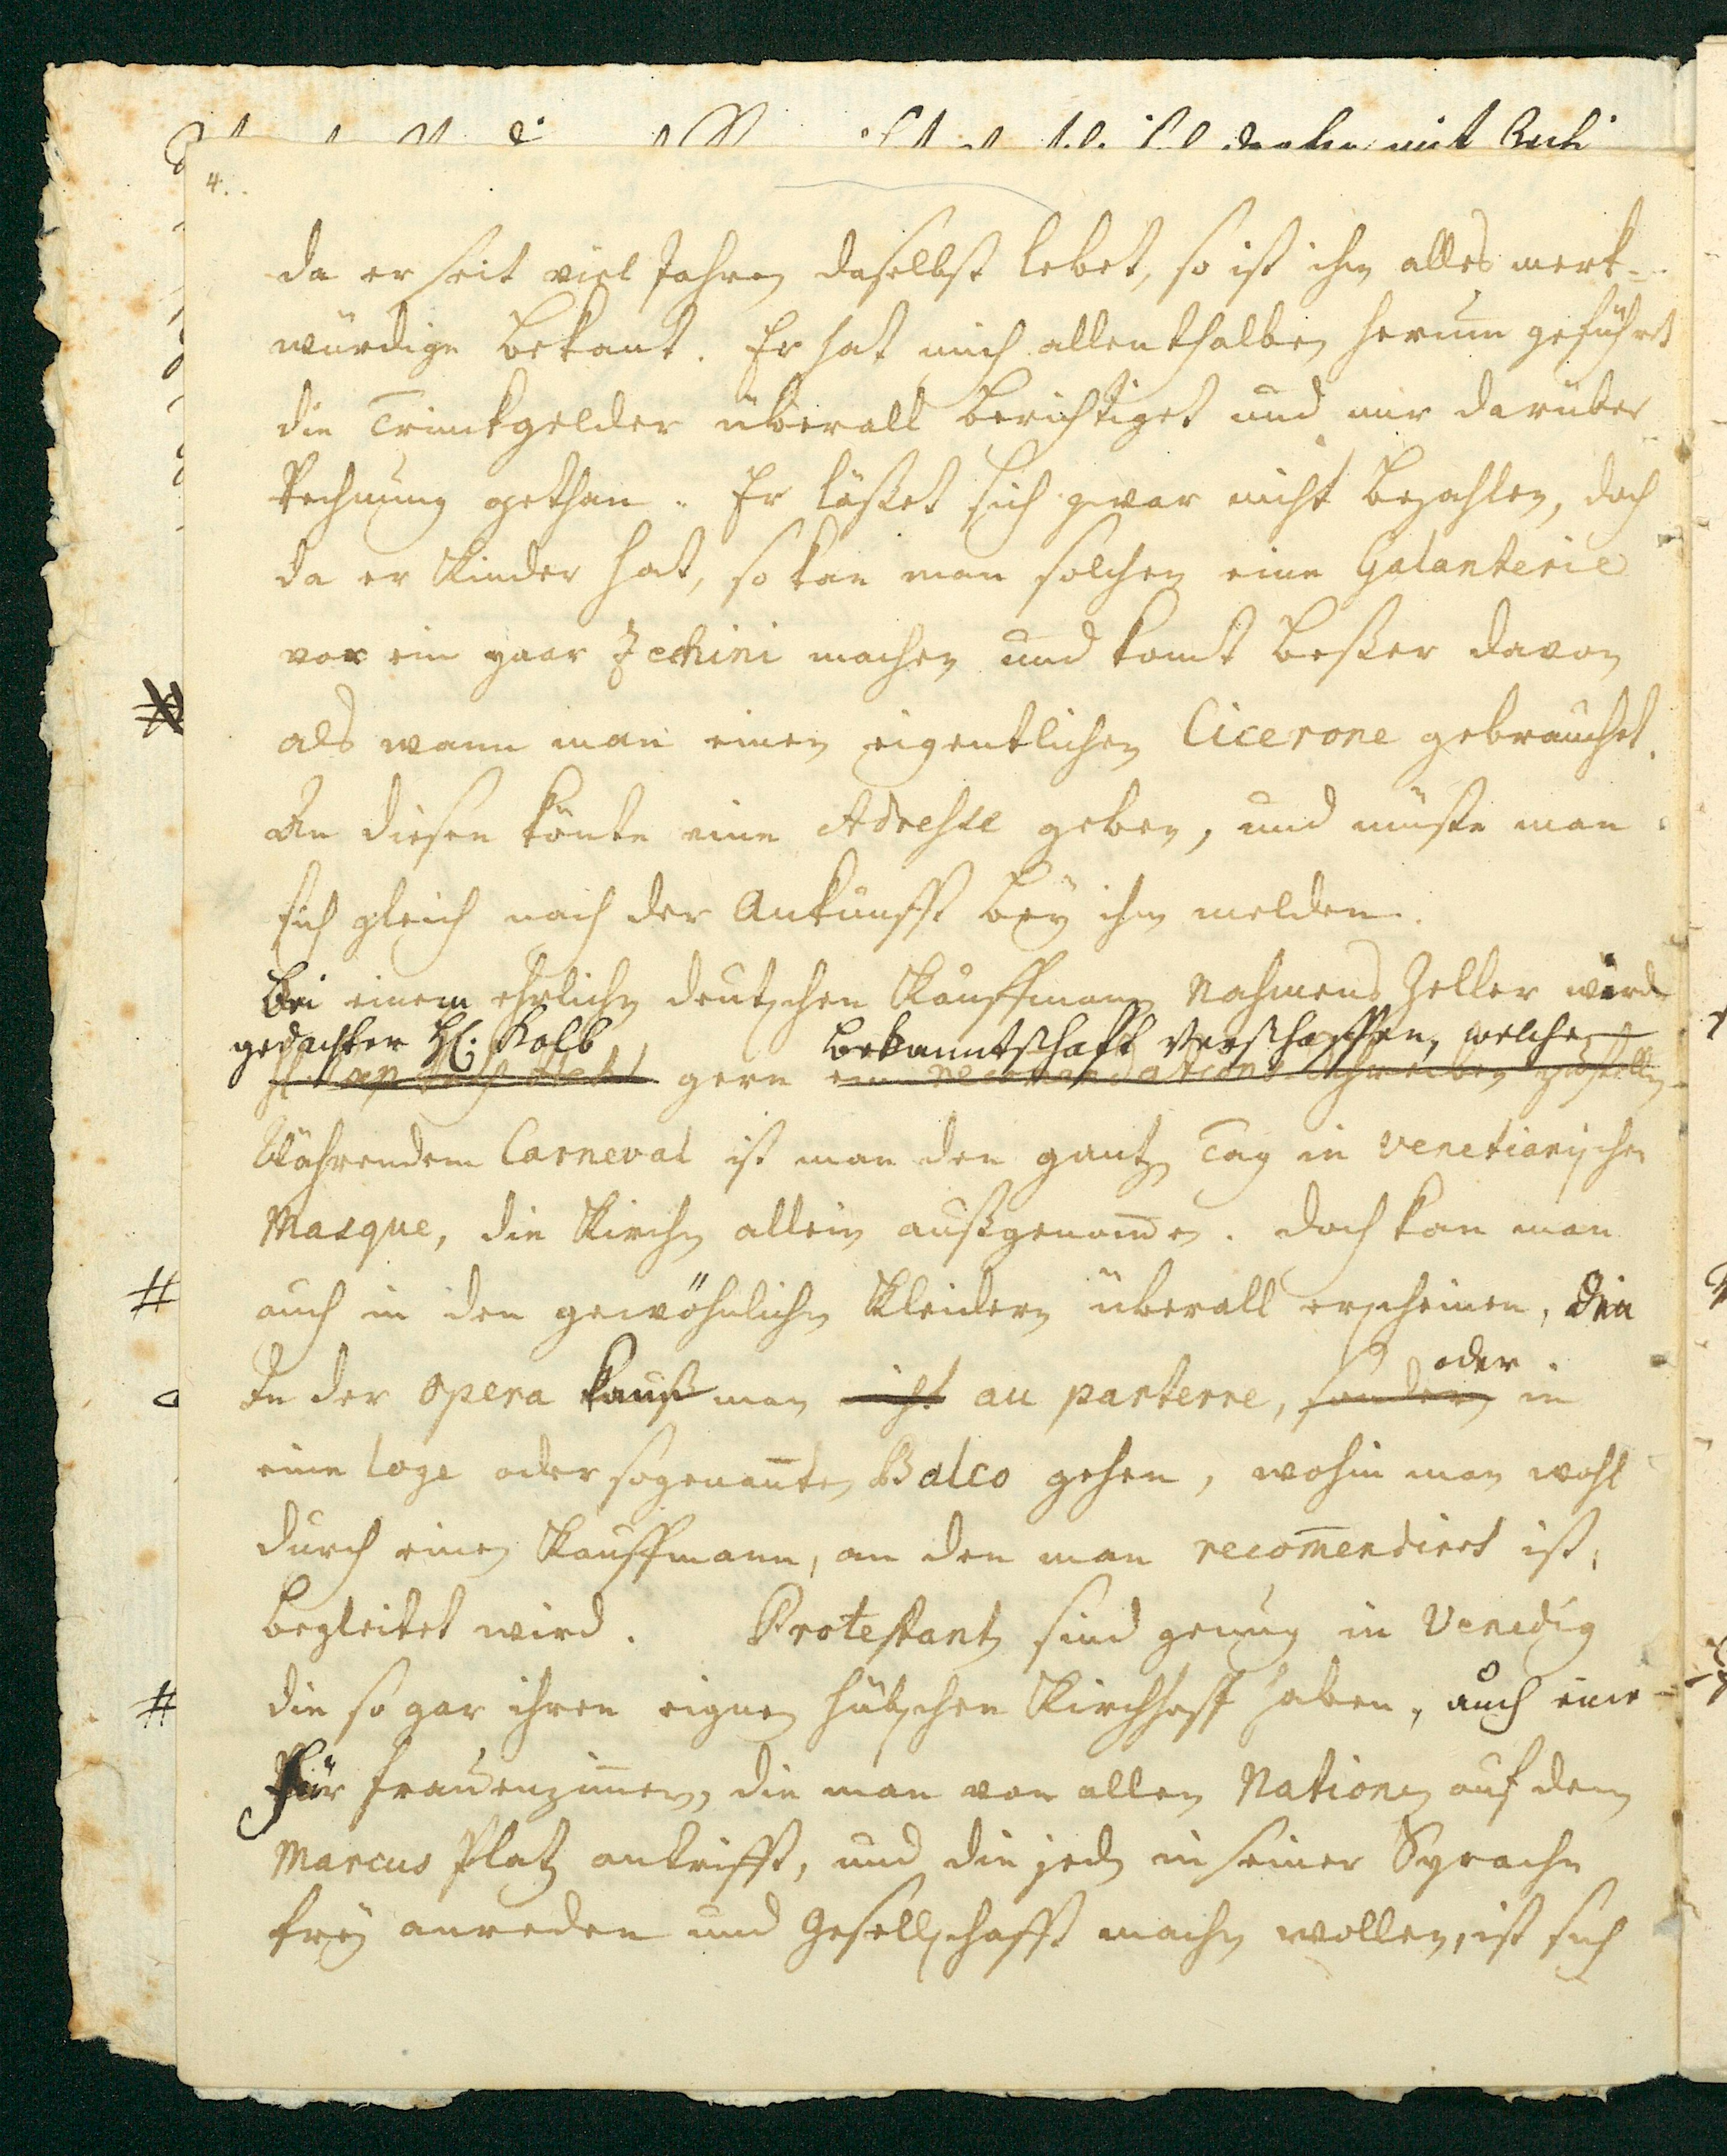 4.
da er seit viel Jahren daselbst lebet, so ist ihm alles merk-
würdige bekant. Er hat mich allenthalben herum geführt
die Trinckgelder überall berichtiget und mir darüber
Rechnung gethan. Er läßet sich zwar nicht bezahlen, doch
da er Kinder hat, so kan man solchen eine Galanterie
vor ein paar Zechini machen und komt beßer davon
als wann man einen eigentlichen Cicerone gebrauchet.
An diesen könte eine Adresse geben, und müste man
sich gleich nach der Ankunfft bey ihm melden.
Bei einem ehrlichen deutschen Kauffmann Nahmens Zeller wird
gedachter H. Kolb bekanntschaft verschaffen, welche
H. gern ein recommandations Schreiben zustellen
Währendem Carneval ist man den gantzen Tag in venetianischer
Masque, die Kirchen allein außgenommen. doch kan man
auch in den gewöhnlichen Kleidern überall erscheinen, die
oder
In der opera kann man nicht au parterre, sondern in
eine loge oder sogenannten Balco gehen, wohin man wohl
durch einen Kauffmann, an den man recommendirt ist,
begleitet wird. Protestanten sind genug in Venedig
die so gar ihren eignen hübschen Kirchhoff haben, auch eine
Für Frauenzimmer, die man von allen Nationen auf dem
Marcus Platz antrifft, und die jeden in seiner Sprache
frey anreden und Gesellschafft machen wollen, ist sich